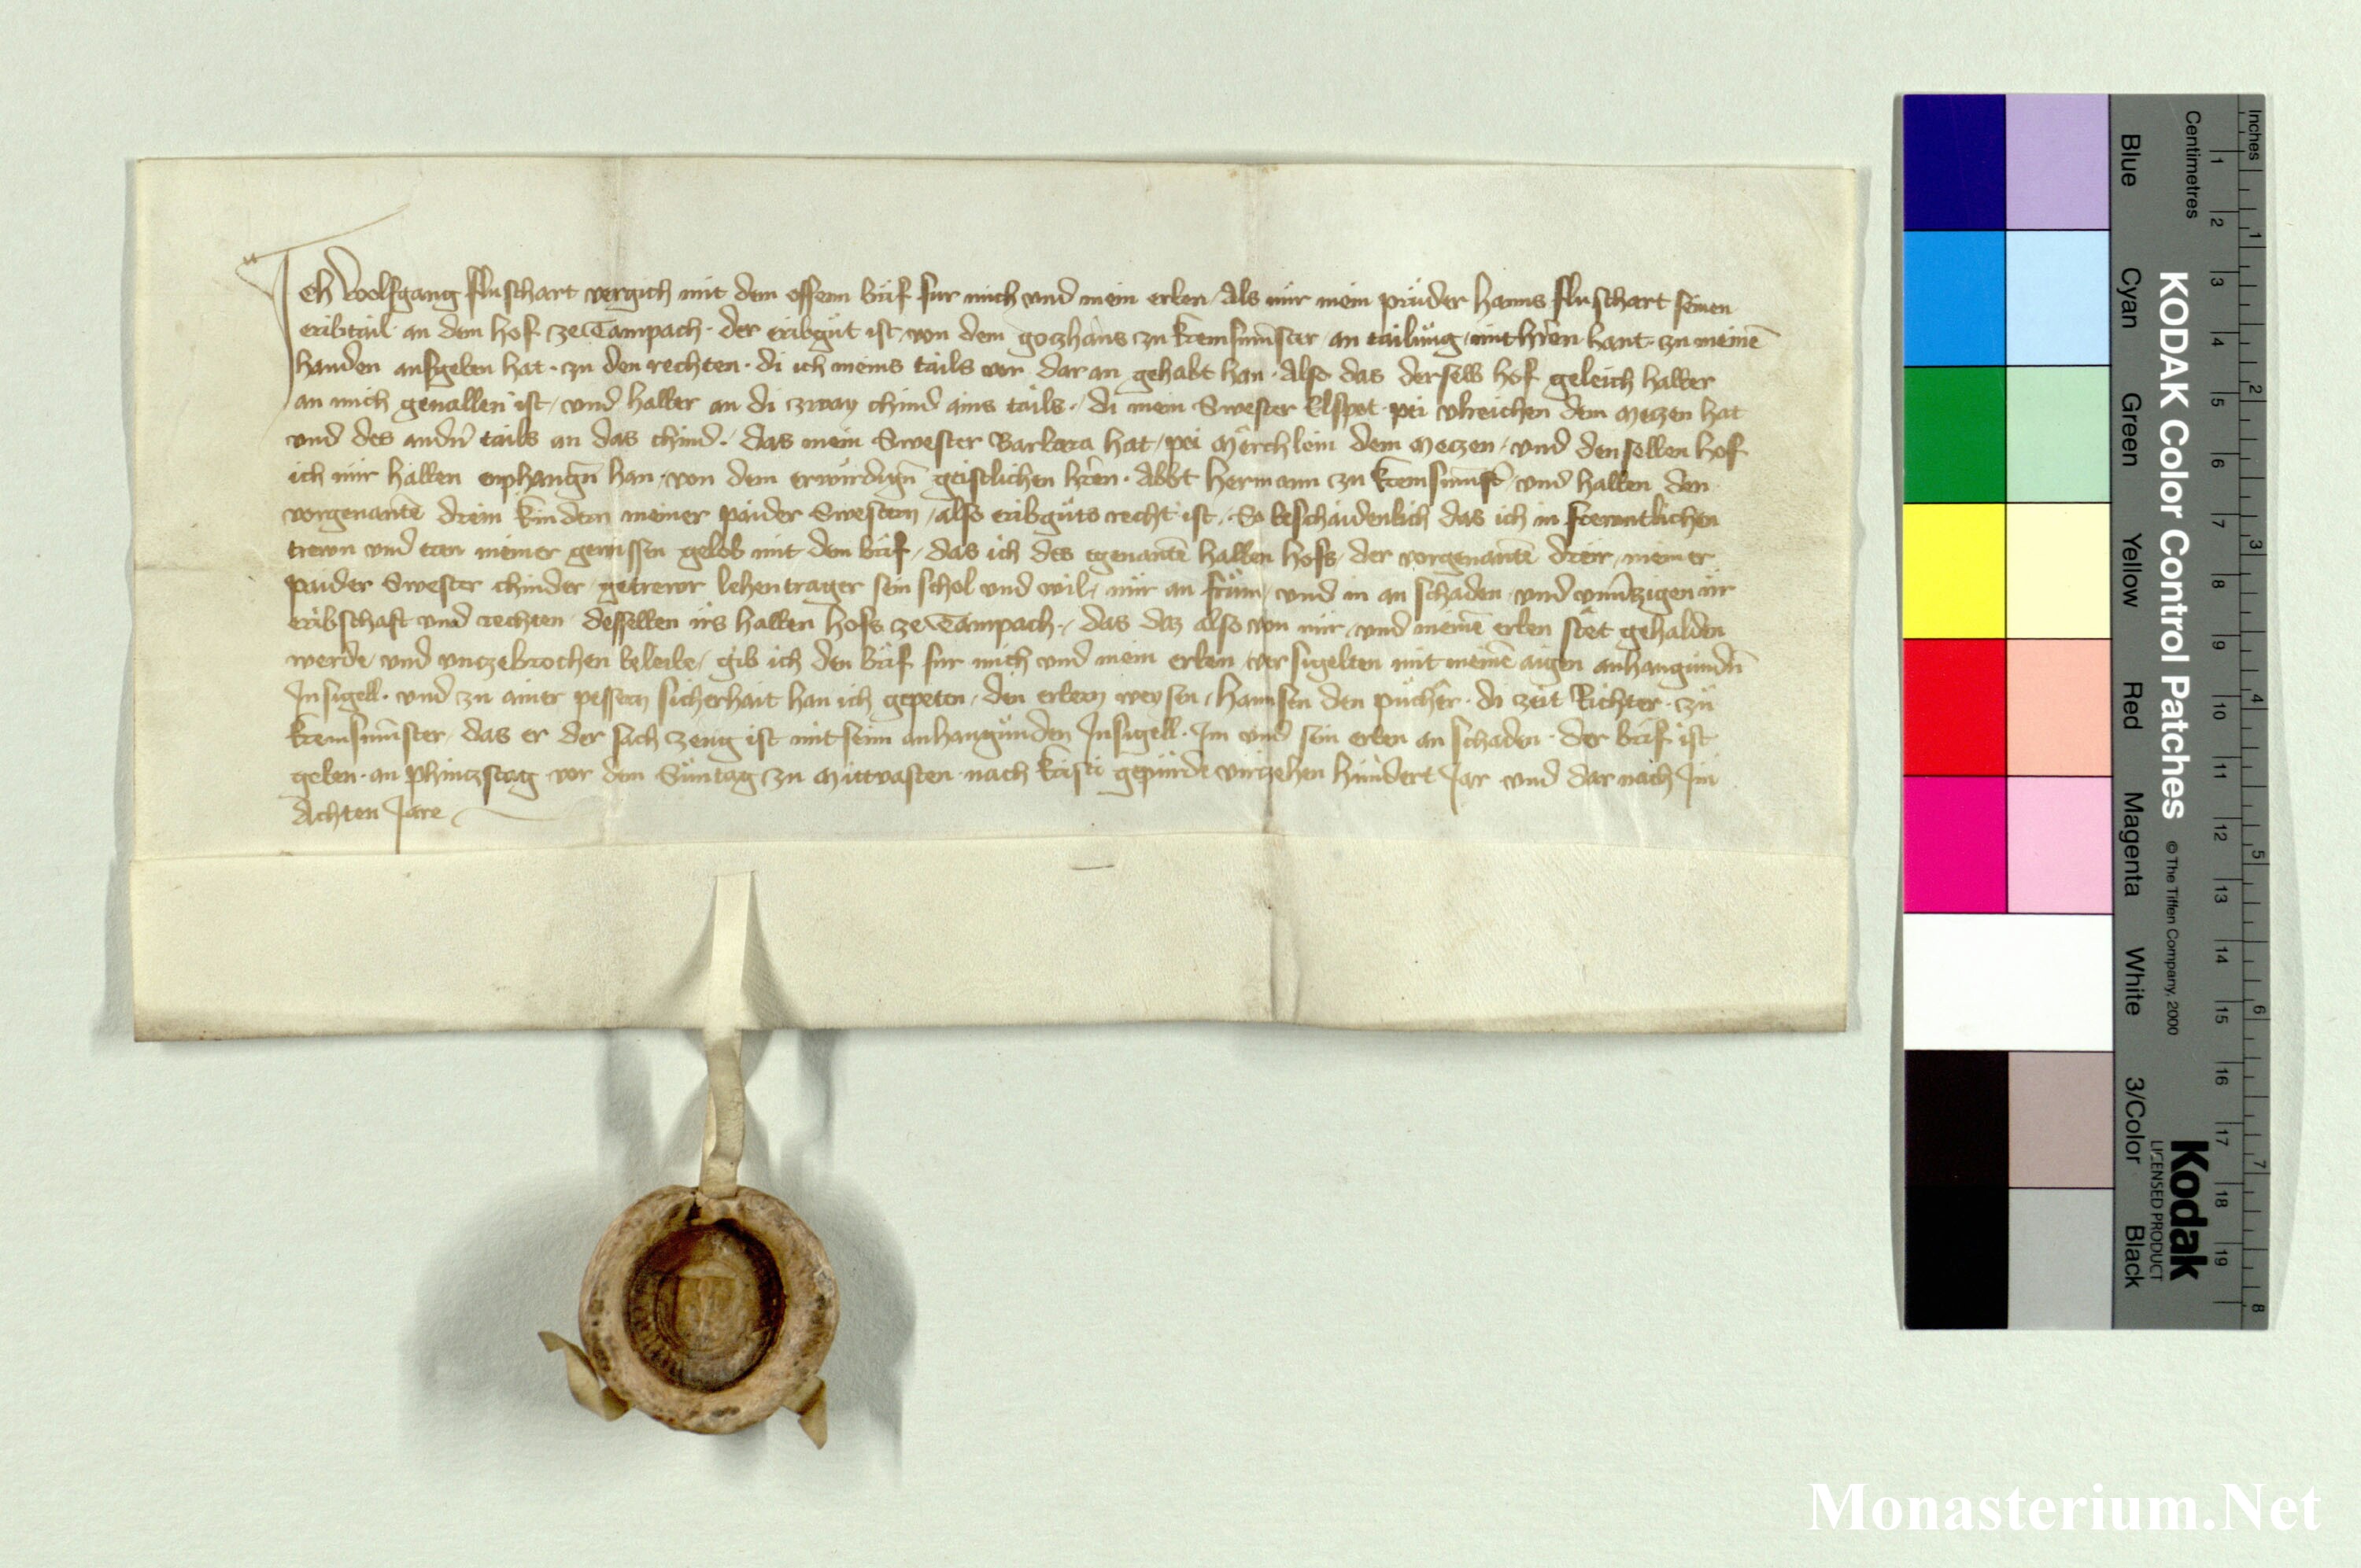 Ich Wolfgang fluschart vergich mit dem offenn brif fur mich und mein erben Als mir mein prüder hanns fluschart seinen
eribtail an dem hof ze Tampach der eribgüt ist von dem gozhaus zu kremsmūster an tailung mit hēren hant zu meinē
handen aufgeben hat zu den rechten di ich meins tails vor dar an gehabt han Also das derselb hof geleich halber
an mich geuallen ist und halber an di zway chind ains tails di mein Swester Elspet pei vlreichen dem Mezen hat
und des andn̄ tails an das chind das mein Swester Barbara hat pei Mêrchlein dem Mezen und denselben hof
ich mir halben enphangn̄ han von dem erwirdign̄ geistlichen hrēn Abbt hermann zu kremsmūst und halben den
vorgenantē drein kindern meiner paider Swestern also eribgüts recht ist So beschaidenlich das ich in frewntlichen
trewn und eren meiner gewissen gelob mit dem brif das ich des egenantē halben hofs der vorgenantē dreir meiner
paider Swester chinder getrewr lehentrager sein schol und wil mir an frům und in an schaden und vnuꝰzigen irr
eribschaft und rechten desselben irs halben hofs ze Tampach das daz also von mir und meinē erben stêt gehalden
werde und vnczebrochen beleibe gib ich den brif fur mich und mein erben versigelten mit meinē aigen anhangündn̄
Insigell und zu ainer pessern sicherhait han ich gepeten den erbern weysen hannsen den püchêr di zeit Richter zü
kremsmūster das er der sach zeug ist mit seim anhangünden Insigell Im und sein erben an schaden der brif ist
geben an phincztag vor dem Süntag zu Mittvasten nach kristi gepürde virzehen hündert Jar und dar nach Im
Achten Jare
Inches
Centimetres
1 2 3 4 5 6 7 8 9 10 11 12 13 14 15 16 17 18 19
1 2 3 4 5 6 7 8
KODAK Color Control Patches © The Tiffen Company, 2000
Kodak
LICENSED PRODUCT
Blue Cyan Green Yellow Red Magenta White 3/Color Black
Monasterium.Net